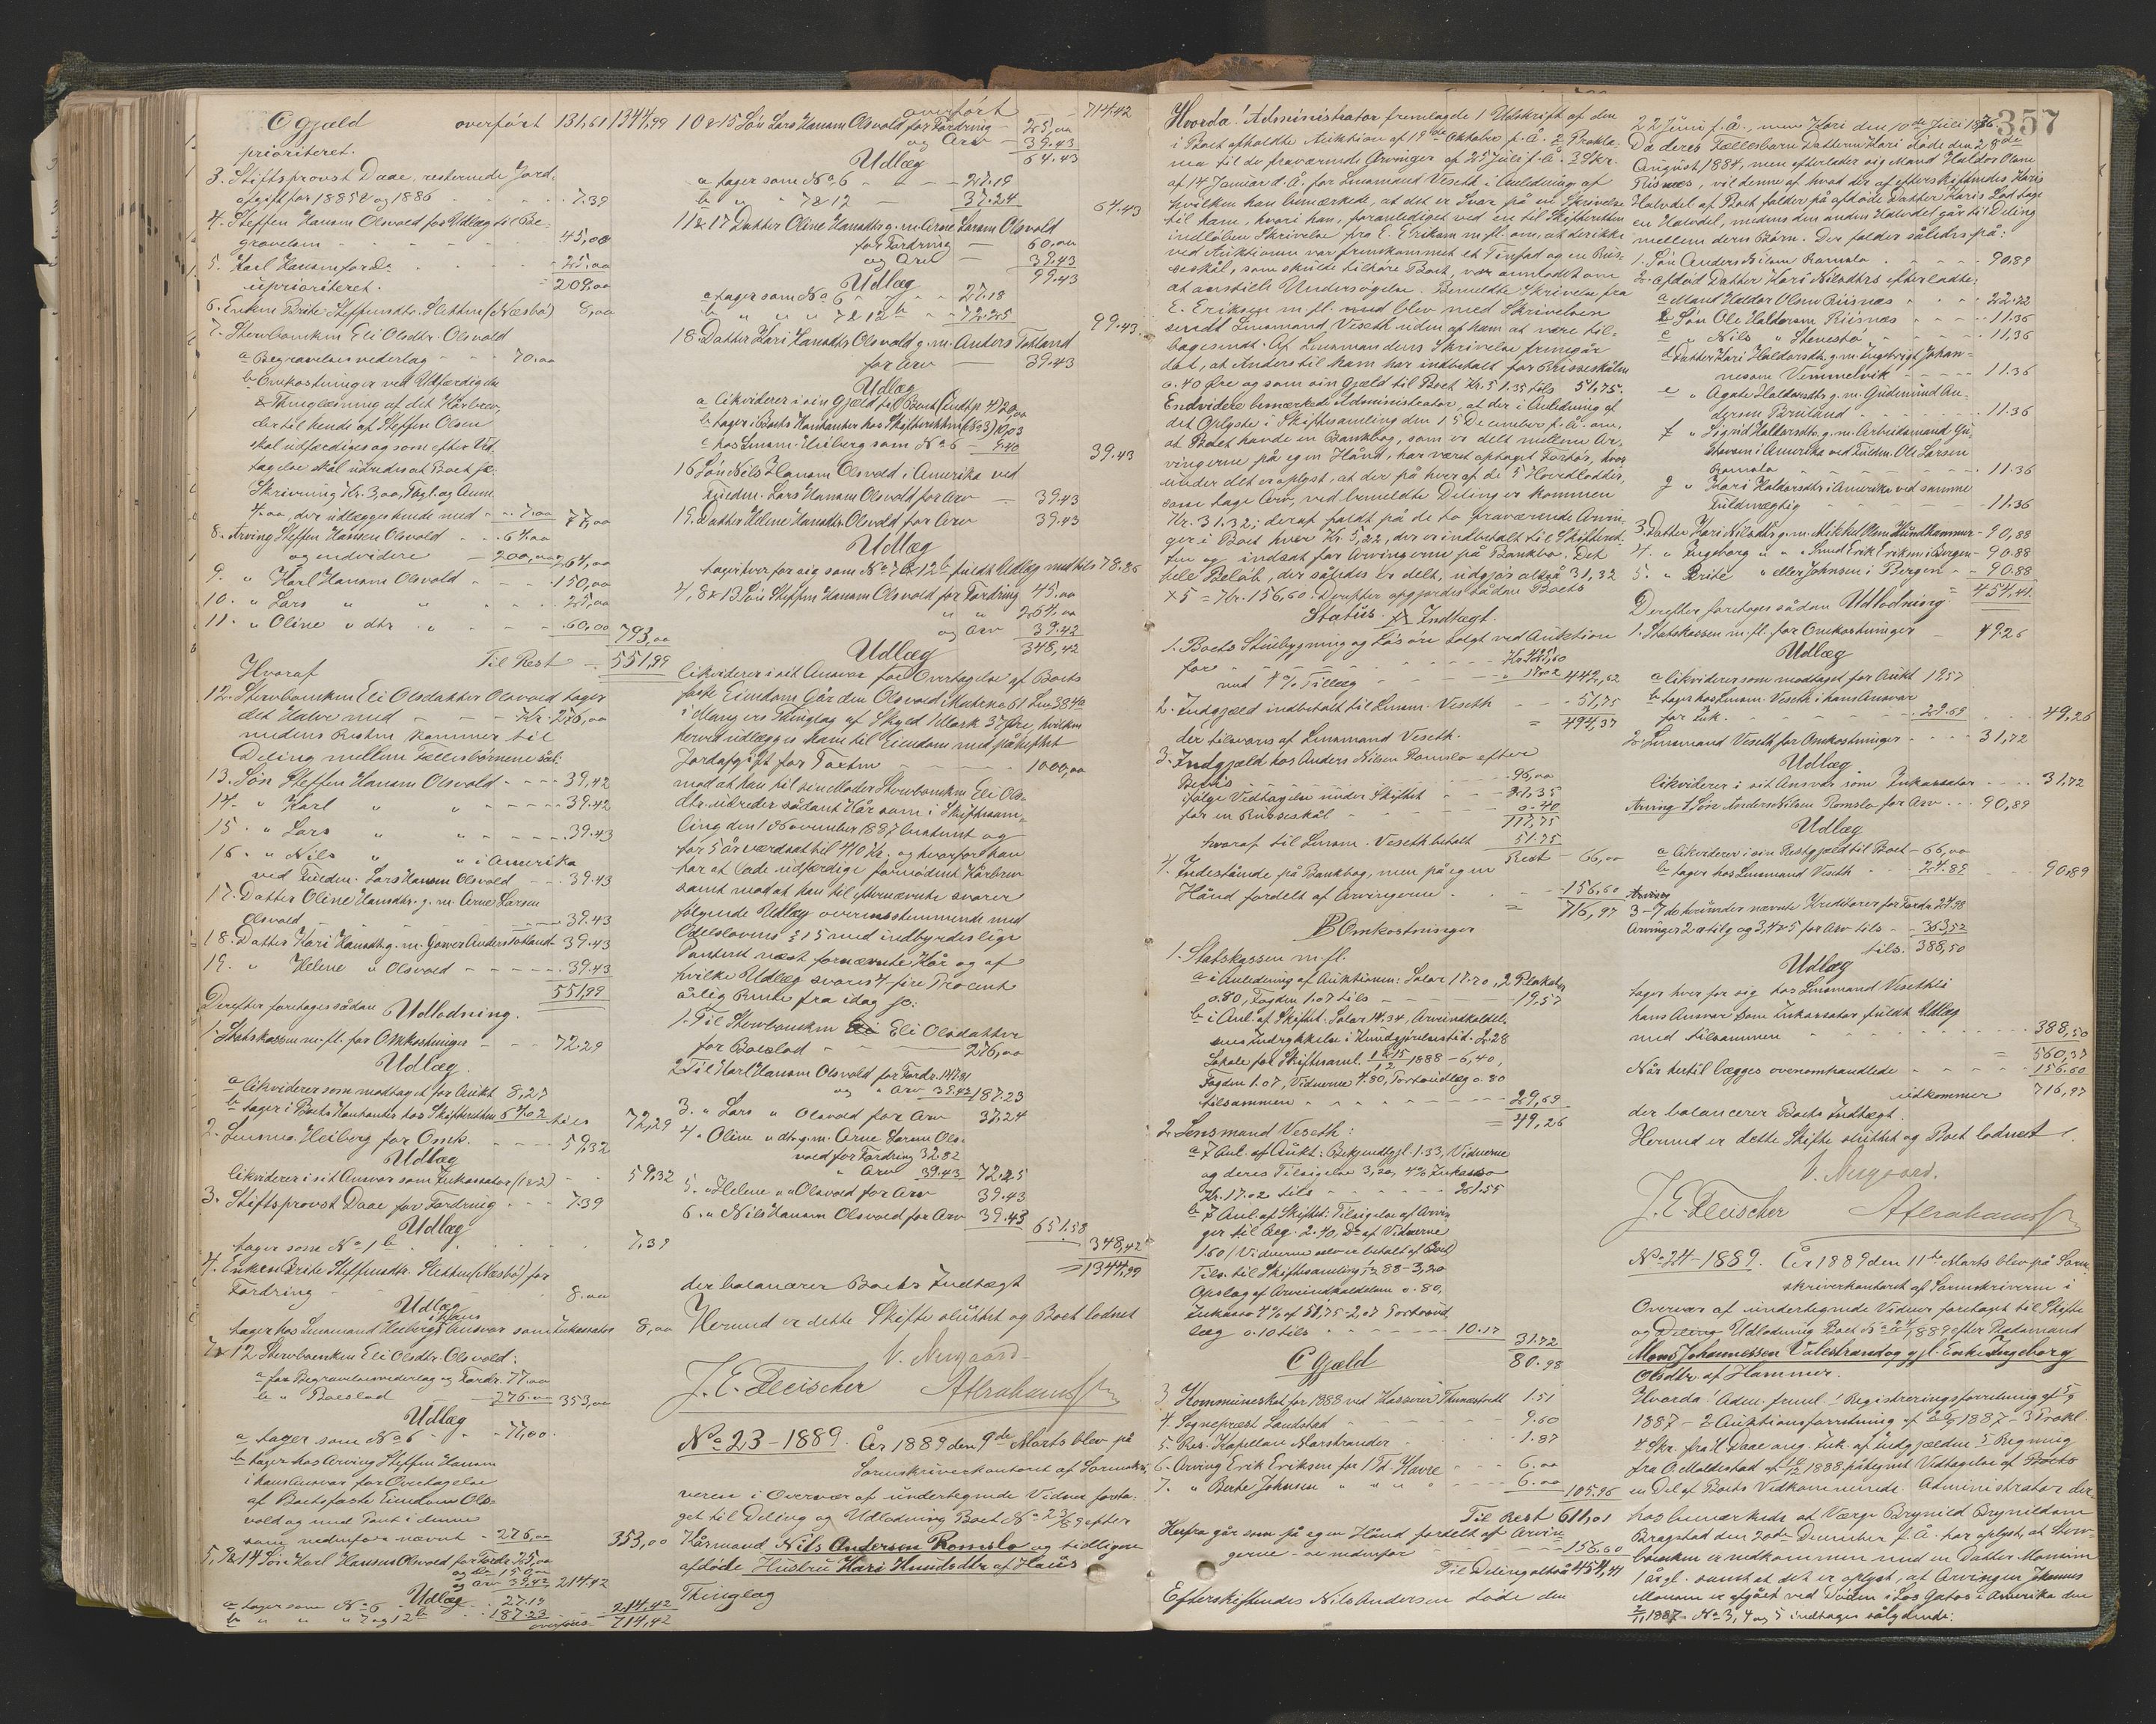 C Gjæld overført 131,61 1344,99
prioriteret.
3. Stiftsprovst Daae, resterende Jord-
afgift for 1885 & og 1886 7.39
4. Steffen Hansen Olsvold for Udlæg til Be-
gravelsen 45,00
5. Karl Hansen for Do 25,00
uprioriteret. 209,00
6. Enken Brite Steffensdtr. Sletten (Næsbø) 8,00
7. Stervboenken Eli Olsdtr. Olsvold
a Begravelsesvederlag 70.00
b Omkostninger ved Udfærdigelse
& Thinglæsning af det Kårbrev,
der til hende af Steffen Olsen
skal udfærdiges og som efter Ved-
tagelse skal udredes at Boet før
Skrivning Kr. 3,00, Thgl. og Anm.
4.00, der udlægges hende med 7.00 77,00
8. Arving Steffen Hansen Olsvold 64.00
og endvidere 200,00 264,00
9. " Karl Hansen Olsvold 150,00
10. " Lars " " 25,00
11. " Oline " dtr. " 60,00 793,00
Til Rest 551,99
Hvoraf
12. Stervboenken Eli Olsdatter Olsvold tager
det Halve med Kr. 276,00
medens Resten kommer til
Deling mellem Fællesbørnene så:
13. Søn Steffen Hansen Olsvold 39,42
14. " Karl " " 39.42
15. " Lars " " 39.43
16. " Nils " " i Amerika
ved Fuldm. Lars Hansen Olsvold 39.43
17. Datter Oline Hansdtr. g. m. Arne Larsen
Olsvold 39.43
18. Datter Kari Hansdtr. g. m. Anders Totland 39.43
19. " Helene " Olsvold 39.43
551,99
Derefter foretages sådan Udlodning.
1. Statskassen m. fl. for Omkostninger 72.29
Udlæg.
a likviderer som modtaget for Aukt 8,27
b tager i Boets Kontanter hos Skifteretten 64.02 tils 72,29
2. Lensmd. Heiberg for Omk. 59,32
Udlæg
likviderer i sit Ansvar som Inkassator (1&2) 59,32
3. Stiftsprovst Daae for Fordring 7.39
Udlæg
tager som No 1 b 7,39
4. Enken Brite Steffensdtr. Sletten (Næsbø) for
Fordring 8.00
Udlæg
tager hos Lensmand Heibergs i hans Ansvar som Inkassator 8,00
7 & 12 Stervboenken Eli Olsdtr. Olsvold:
a for Begravelsesvederlag og Fordr. 77,00
b " Boeslod 276.00 353,00
Udlæg
a tager som No 6 77,00.
b tager hos Arving Steffen Hansen
i hans Ansvar for Overtagelse
af Boets faste Eiendom Ols-
vold og med Pant i denne
som nedenfor nævnt 276,00 353,00
5, 9 & 14 Søn Karl Hansen Olsvold for Fordr. 25,00
og Do 150,00
og Arv 39,42 214.42
Udlæg
a tager som No 6 27.19
b " " " 7 og 12 b 187.23 214,42
overføres 714,42
overført 714.42
10 & 15 Søn Lars Hansen Olsvold for Fordring 25,00
og Arv 39.43
64.43
Udlæg
a tager som No 6 27.19
b " " 7 & 12 37.24 64.43
11 & 17 Datter Oline Hansdtr. g. m. Arne Larsen Olsvold
for Fordring 60,00
og Arv 39.43
99.43
Udlæg
a tager som No 6 27.18
b " " " 7 & 12 b 72.25 99.43
18. Datter Kari Hansdtr. Olsvold g. m. Anders Totland
for Arv 39.43
Udlæg
a likviderer i sin Gjæld til Boet (Indtp. 4) 20,00
b tager i Boets Kontanter hos Skifteretten (No 3) 10,03
c hos Lensm. Heiberg som No 6 9.40 39.43
16 Søn Nils Hansen Olsvold i Amerika ved
Fuldm. Lars Hansen Olsvold for Arv 39.43
19. Datter Helene Hansdtr. Olsvold for Arv 39.43
Udlæg
tager hver for sig som No 7 & 12 b fuldt Udlæg med tils 78.86
4, 8 & 13 Søn Steffen Hansen Olsvold for Fordring 45.00
" " 264,00
og Arv 39.42
348,42
Udlæg
likviderer i sit Ansvar for Overtagelse af Boets
faste Eiendom Gården Olsvold, Matr. No 61 Lno 384a
i Mangers Thinglag af Skyld 1 Mark 37 Øre, hvilken
herved udlægges ham til Eiendom med påheftet
Jordafgift for Taxten 1000,00
mod at han til sin Moder Stervboenken Eli Ols-
dtr. udreder sådant Kår som i Skiftesam-
ling den 1 November 1887 bestemt og
for 5 år værdsat til 410 Kr. og hvorfor han
har at lade udfærdige fornødent Kårbrev
samt mod at han til efternævnte svarer
følgende Udlæg overensstemmende med
Odelslovens § 15 med indbyrdes lige
Panteret næst fornævnte Kår og af
hvilke Udlæg svares 4 - fire Procent
årlig Rente fra idag så:
1. Til Stervboenken Eli Olsdatter
for Boeslod 276,00
2. Til Karl Hansen Olsvold for Fordr. 147.81
og " Arv 39.42 187.23
3. " Lars " Olsvold for Arv 37.24
4. " Oline " dtr. g. m. Arne Larsen Ols-
vold for Fordring 32.82
" Arv 39.43 72.25
5. " Helene " " Olsvold for Arv 39.43
6. " Nils Hansen Olsvold for Arv 39.43 651.58
348,42
= 1344,99
der balancerer Boets Indtægt
Hermed er dette Skifte sluttet og Boet lodnet
V. Neegaard
J. E. Fleischer Abrahams
No 23 - 1889. År 1889 den 9de Marts blev på
Sorenskriverkontoret af Sorenskri-
veren i Overvær af undertegnede Vidner foreta-
get til Deling og Udlodning Boet No 23/89 efter
Kårmand Nils Andersen Romslo og tidligere
afdøde Hustru Kari Knudsdtr. af Haus
Thinglag
357
Hvorda! Administrator fremlagde 1 Udskrift af den
i Boet afholdte Auktion af 19de Oktober f. Å. 2 Prokla-
ma til de fraværende Arvinger af 25 Juli f. Å. 3 Skr.
af 14 Januar d. Å. fra Lensmand Veseth i Anledning af
hvilken han bemærkede, at det er Svar på en Skrivelse
til ham, hvori han, foranlediget ved en til Skifteretten
indløben Skrivelse fra E. Eriksen m. fl. om, at der ikke
ved Auktionen var fremkommet et Tinfad og en Rus-
seskål, som skulde tilhøre Boet, var anmodet om
at anstille Undersøgelse. Bemeldte Skrivelse fra
E. Eriksen m. fl. med blev med Skrivelsen
sendt Lensmand Veseth uden af ham at være til-
bagesendt. Af Lensmandens Skrivelse fremgår
det, at Anders til ham har indbetalt for Russeskålen
o. 40 Øre og som sin Gjæld til Boet Kr. 51.35 tils 51,75.
Endvidere bemærkede Administrator, at der i Anledning af
det Oplyste i Skiftesamling den 15 December f. Å. om,
at Boet havde en Bankbog, som er delt mellem Ar-
vingerne på egen Hånd, har været optaget Forhør, hvor
under det er oplyst, at der på hver af de 5 Hovedlodder,
som tage Arv, ved bemeldte Deling er kommen
Kr. 31.32; deraf faldt på de to fraværende Arvin-
ger i Boet hver Kr. 5,22, der er indbetalt til Skifteret-
ten og indsat for Arvingerne på Bankbo. Det
hele Beløb, der således er delt, udgjør altså 31,32
x 5 = Kr. 156,60. Derefter opgjordes sådan Boets
Status. A Indtægt.
1. Boets Stuebygning og Løsøre solgt ved Auktion
for Kr. 425,60
med 4 % Tillæg " 17.02 442,62
2. Indgjæld indbetalt til Lensm. Veseth 51,75
der tilsvares af Lensmand Veseth. = 494,37
3. Indgjæld hos Anders Nilsen Romslo efter
Bevis 96,00
ifølge Vedtagelse under Skiftet 21,35
for en Russeskål 0.40
117,75
hvoraf til Lensm. Veseth betalt 51.75
Rest 66,00
4. Indestående på Bankbog, men på egen
Hånd fordelt af Arvingerne 156,60
= 716,97
B Omkostninger
1. Statskassen m. fl.
a i Anledning af Auktionen: Salær 17.70, 2 Plakater
0.80, Fogden 1.07 tils 19.57
b i Anl. af Skiftet: Salær 14.34, Arveindkaldel-
sens Indrykkelse i Kundgjørelsestid. 2.28
Lokale for Skiftesaml. 1888 - 6,40,
Fogden 1.07, Vidnerne 4.80, Portoudlæg 0.80
tilsammen 29,69
= 49,26
2. Lensmand Veseth:
a I Anl. af Aukt: Bekjendtgj. 1.33, Vidnerne
og deres Tilsigelse 3,20, 4 % Inkasso
Kr. 17.02 tils 21.55
b I Anl. af Skiftet: Tilsigelse af Arvin-
ger til Reg. 2.40, Do af Vidnerne
1.60 (Vidnerne selv er betalt af Boet)
Tils. til Skiftesamling 88 - 3,20
Opslag af Arveindkaldelsen 0.80,
Inkasso 4 % af 51,75 - 2.07 Portoud-
læg 0.10 tils 10.17 31.72
80.98
C Gjæld
3. Kommuneskat for 1888 ved Kasserer Thunestvedt 1.51
4. Sognepræst Landstad 9.60
5. Res. Kapellan Marstrander 1.87
6. Arving Erik Eriksen for 1 Td. Havre 6.00
7. " Berte Johnsen " " " " 6.00 105.96
Til Rest 611,01
Herfra går som på egen Hånd fordelt af Arvin-
gerne - se nedenfor 156.60
Til Deling altså 454,41
Efterskiftendes Nils Andersen døde den
22 Juni f. Å., men Kari den 10de Juli 1876.
Da deres Fællesbarn Datteren Kari døde den 28de
August 1884, men efterlader sig Mand Haldor Olsen
Risnæs, vil denne af hvad der af efterskiftendes Karis
Halvdel af Boet falder på afdøde Datter Karis Lod tage
en Halvdel, medens den anden Halvdel går til Deling
mellem deres Børn. Der falder således på:
1. Søn Anders Nilsen Romslo 90.89
2. afdød Datter Kari Nilsdtrs efterladte:
a Mand Haldor Olsen Riisnæs 22.72
b Søn Ole Haldorsen Riisnæs 11.36
c " Nils " Stenestø 11,36
d Datter Kari Haldorsdtr. g. m. Ingebrigt Johan-
nesen Vemmelvik 11.36
e " Agate Haldorsdtr. g. m. Gudmund An-
dersen Bruland 11.36
f " Sigrid Haldorsdtr. g. m. Arbeidsmand Gu-
i Amerika ved Fuldm. Ole Larsen
Romslo 11.36
g " Kari Haldorsdtr. i Amerika ved samme
Fuldmægtig 11,36
3. Datter Kari Nilsdtr. g. m. Mikkel Olsen Hundhammer 90,88
4. " Ingeborg " " " Smed Erik Eriksen i Bergen 90.88
5. " Brite " eller Johnsen i Bergen 90.88
= 454,41
Derefter foretages sådan Udlodning.
1. Statskassen m. fl. for Omkostninger 49.26
Udlæg
a likviderer som modtaget for Aukt 19,57
b tager hos Lensm. Veseth i hans Ansvar
for Ink. 29.69 49,26
2. Lensmand Veseth for Omkostninger 31,72
Udlæg
likviderer i sit Ansvar som Inkassator 31,72
Arving 1. Søn Anders Nilsen Romslo for Arv 90,89
Udlæg
a likviderer i sin Restgjæld til Boet 66,00
b tager hos Lensmand Veseth 24.89 90,89
3-7 de herunder nævnte Kreditorer for Fordr. 24.98
Arvinger 2 a til g og 3, 4 & 5 for Arv tils 363,52
tils. 388,50
Udlæg
tager hver for sig hos Lensmand Veseth i
hans Ansvar som Inkassator fuldt Udlæg
med tilsammen 388,50
= 560,37
Når hertil lægges ovenomhandlede 156.60
udkommer 716,97
der balancerer Boets Indtægt.
Hermed er dette Skifte sluttet og Boet lodnet.
V. Neegaard.
J. E. Fleischer Abrahams
No 24 - 1889. År 1889 den 11te Marts blev på Soren-
skriverkontoret af Sorenskriveren i
Overvær af undertegnede Vidner foretaget til Skifte
og Deling Udlodning Boet No 24/1889 efter Pladsmand
Mons Johannessen Valestrand og gjl. Enke Ingeborg
Olsdtr. af Hammer.
Hvorda! Adm. freml. 1 Registreringsforretning af
1887 - 2 Auktionsforretning af 1887 - 3 Prokl.
4 Skr. fra K. Daae ang. Ink. af Indgjælden. 5 Regning
fra O. Moldestad af 1888 påtegnet Vedtagelse af Boets
en Del af Boets Vedkommende. Administrator der-
hos bemærkede at Værge Brynild Brynildsen
Bragstad den 20de December f. Å. har oplyst, at Sterv-
boenken er nedkommen med en Datter Monsine
1 år gl. samt at det er oplyst, at Arvingen Johannes
Monsen er afgået ved Døden i Los Gatos i Amerika den
1887. No 3, 4 og 5 indtages sålydende: